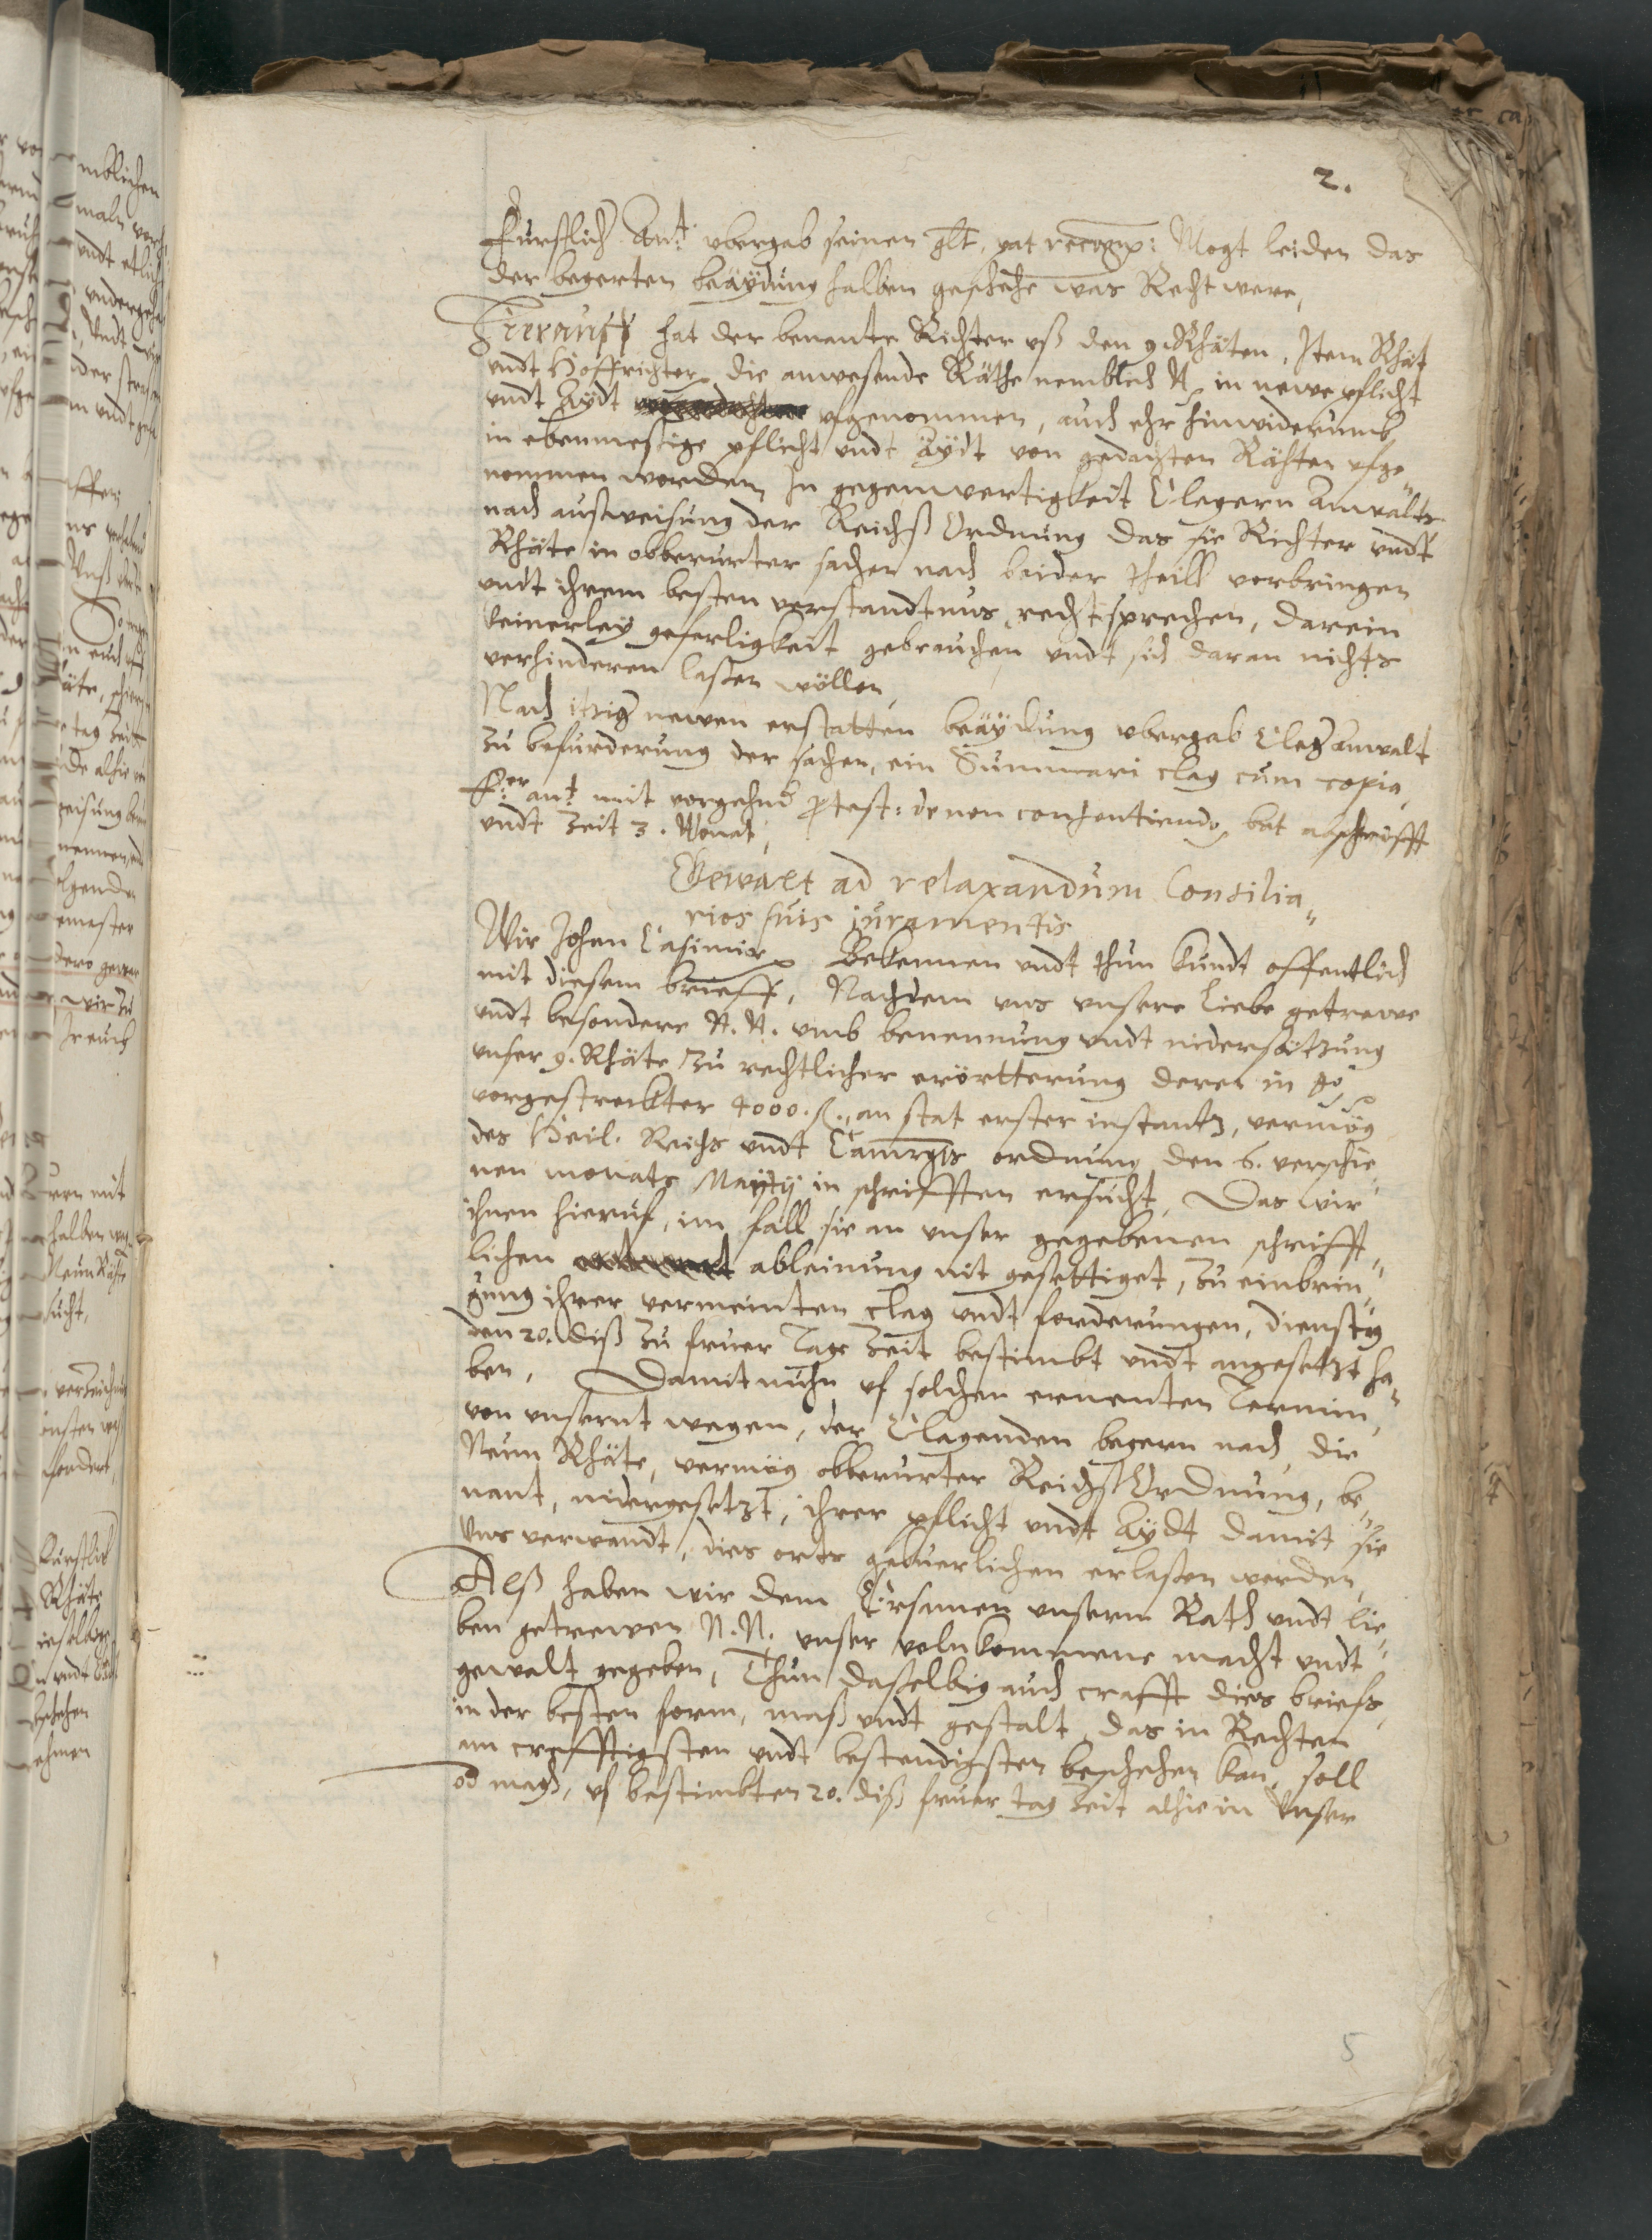 2.
Furstlich Anwt. ubergab seinen glt, pat recogn: Mogt leiden das
der begerten beäydung halben geschehe was Recht were,
Hierauff hat der benante Richter uß den 9. Rhäten, Item Rhät
undt Hoffrichter, die anwesende Räthe nemblich N. in newe pflicht
undt Aydt ufgenommen, auch ehr hinwiderumb
in ebenmessige pflicht undt Äydt von gedachten Räthen ufge-
nommen worden, In gegenwertigkeit Clegern Anwalts
nach außweisung der Reichß Ordnung das sie Richter undt
Rhäte in obberurter sachen nach beider theill vorbringen
undt ihrem besten verstandtnus recht sprechen, darein
keinerley geferligkeit gebrauchen undt sich daran nichts
verhinderen lassen wöllen,
Nach itzig newen erstatten beäydung ubergab Cleg. anwalt
zu befurderung der sachen, ein Summari clag cum copia,
F.er anwt. mit vorgehnd protest: de non consentiendo, bat abschrifft
undt Zeit 3. Monat,
Gewalt ad relaxandum Consilia-
rios suis juramentis
Wir Johan Casimir Bekennen undt thun kundt offentlich
mit diesem brieff, Nachdem uns unsere liebe getrewe
undt besondere N. N. umb benennung undt nidersätzung
unser 9. Rhäte zu rechtlicher erörtterung derer in
vorgestreckter 4000. fl., an stat erster instantz, vermög
des Heil. Reichs undt Camrgts ordnung den 6. verschie-
nen monats Maytij in schrifften ersucht, Das wir
ihnen hieruf, im fall sie an unser gegebenen schrifft-
lichen ableinung nit gesettiget, zu einbrin-
gung ihrer vermeinten clag undt forderungen, dienstag
den 20. diß zu fruer Tage Zeit bestimbt undt angesetzt ha-
ben, Damit nuhn uf solchen ernenten Termin,
von unsernt wegen, der Clagenden begern nach, die
Neun Rhäte, vermög obberurter Reichß Ordnung, be-
nant, nidergesetzt, ihrer pflicht undt Aydt damit sie
Uns verwandt, dies orts gebuerlichen erlassen werden,
Alß haben wir dem Ersamen unserm Rath undt lie-
ben getrewen N. N. unser volnkommene macht undt
gewalt gegeben, Thun dasselbig auch crafft dies briefs,
in der besten form, maß undt gestalt, das in Rechten
am crefftigsten undt bestendigsten beschehen kan, soll
od. magh, uf bestimbten 20. diß fruer tag Zeit alhie in Unser
5